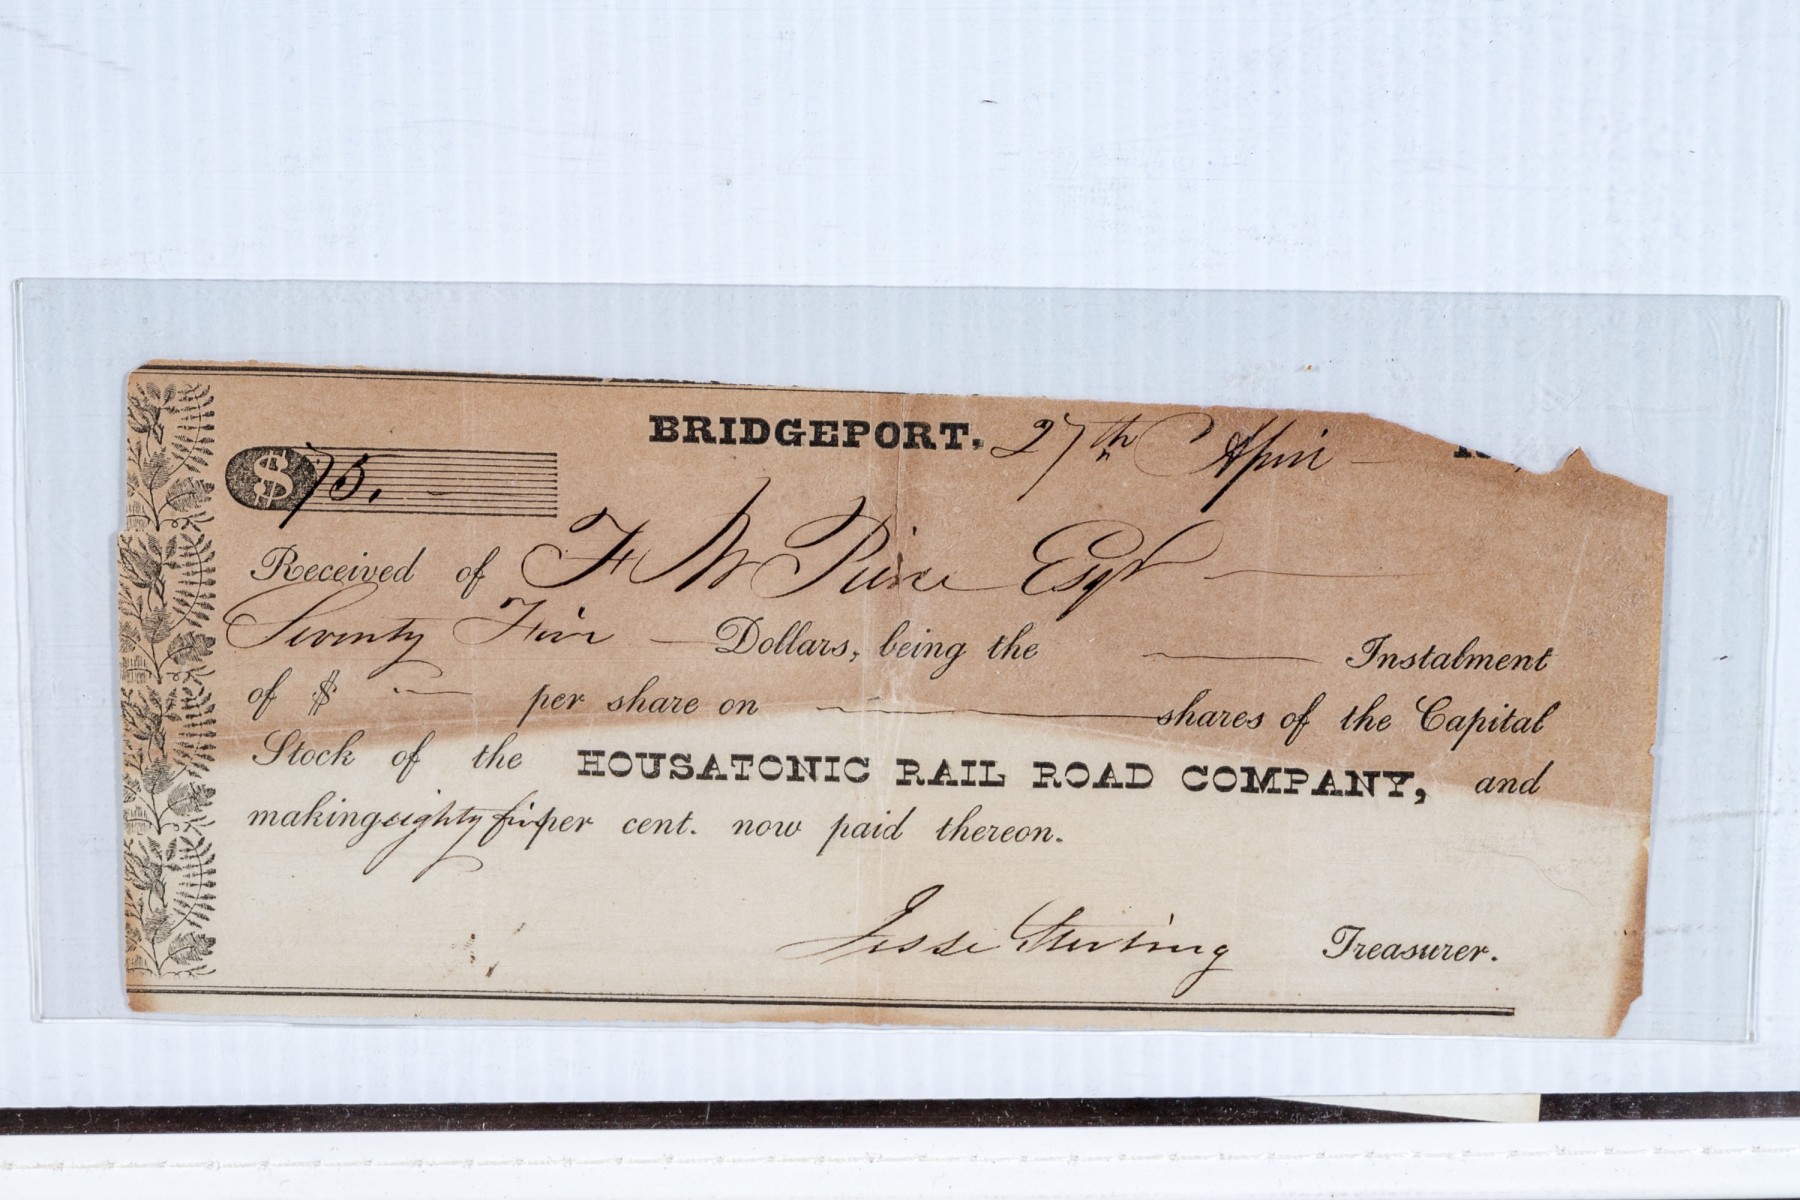 BRIDGEPORT, 27th April
$75. -
Received of F W Pierce Esqr
Seventy Five Dollars, being the — Instalment
of $ — per share on — shares of the Capital
Stock of the HOUSATONIC RAIL ROAD COMPANY, and
making eighty five per cent. now paid thereon.
Jesse Sterling Treasurer.